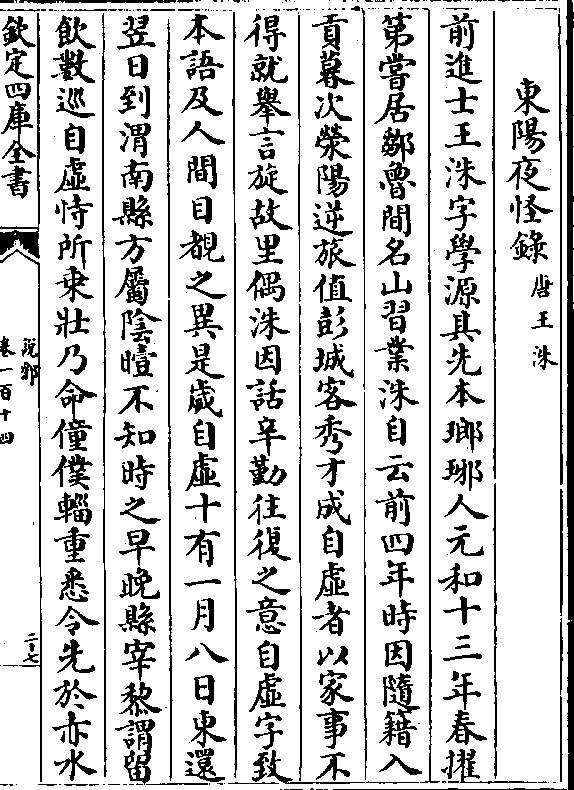 東陽夜怪錄 唐王洙
前進士王洙字學源其先本瑯琊人元和十三年春擢
第嘗居鄒魯間名山習業洙自云前四年時因隨籍入
貢暮次滎陽逆旅值彭城客秀才成自虛者以家事不
得就舉言旋故里偶洙因話辛勤往復之意自虛字致
本語及人間目覩之異是歲自虛十有一月八日東還
翌日到渭南縣方屬陰曀不知時之早晚縣宰黎謂留
飲數巡自虛恃所乘壯乃命僮僕輜重悉令先於赤水
欽定四庫全書
說郛
卷一百十四
二十七